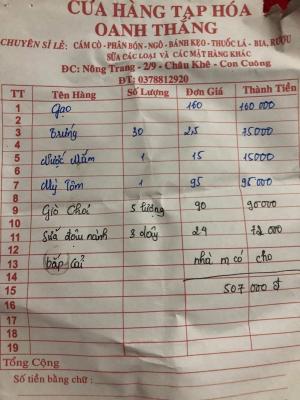 CỬA HÀNG TẠP HÓA
OANH THẮNG
CHUYÊN SỈ LẺ: CÁM CÒ - PHÂN BÓN - NGÔ - BÁNH KẸO - THUỐC LÁ - BIA, RƯỢU
SỮA CÁC LOẠI VÀ CÁC MẶT HÀNG KHÁC
ĐC: Nông Trang - 2/9 - Châu Khê - Con Cuông
ĐT: 0378812920
TT Tên Hàng Số Lượng Đơn Giá Thành Tiền
1 Gạo 160 160 000
2
3 Trứng 30 2,5 75000
4
5 Nước Mắm 1 15 15000
6
7 Mỳ Tôm 1 95 95000
8
9 Giò Chả 5 lượng 90 90000
10
11 Sữa đậu nành 3 dây 24 72 000
12
13 bắp cải nhà m có cho
14
15 507 000 đ
16
17
18
19
Tổng Cộng
Số tiền bằng chữ :